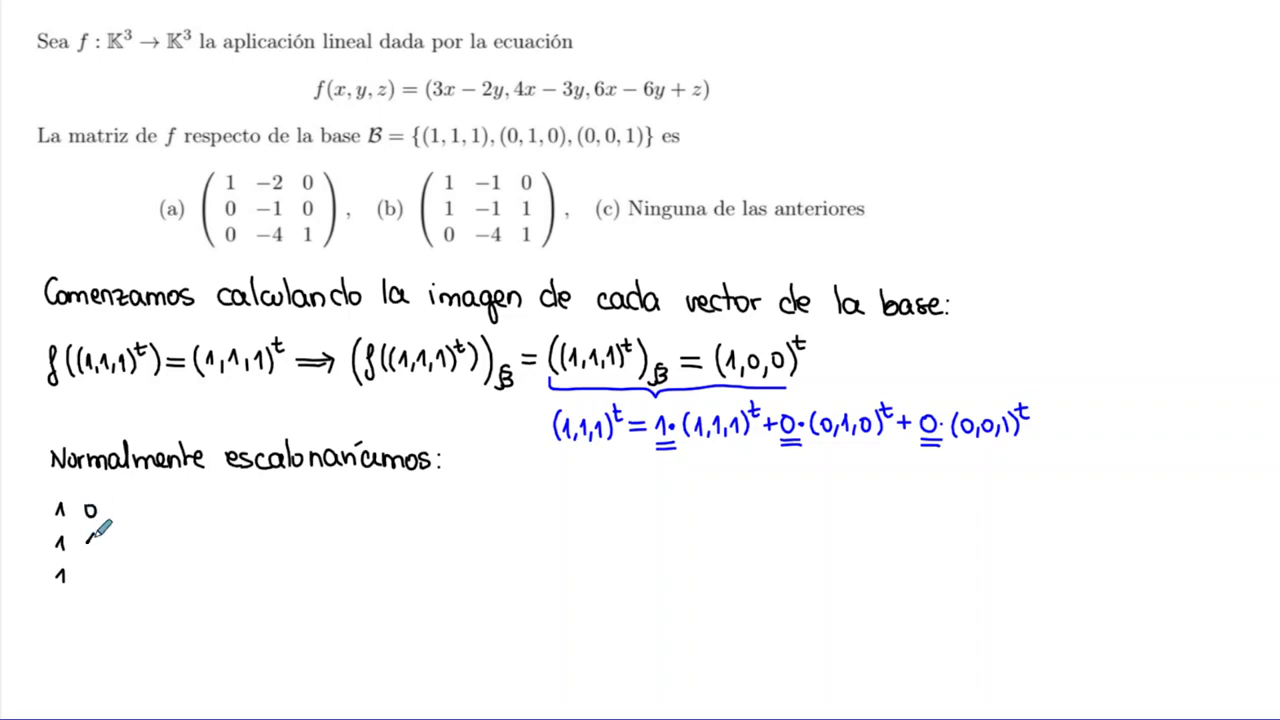 Sea f : 𝕂³ → 𝕂³ la aplicación lineal dada por la ecuación
f(x, y, z) = (3x − 2y, 4x − 3y, 6x − 6y + z)
La matriz de f respecto de la base ℬ = {(1, 1, 1), (0, 1, 0), (0, 0, 1)} es
(a) ( 1 −2 0 ; 0 −1 0 ; 0 −4 1 ), (b) ( 1 −1 0 ; 1 −1 1 ; 0 −4 1 ), (c) Ninguna de las anteriores
Comenzamos calculando la imagen de cada vector de la base:
f((1,1,1)ᵗ) = (1,1,1)ᵗ ⟹ (f((1,1,1)ᵗ))_ℬ = ((1,1,1)ᵗ)_ℬ = (1,0,0)ᵗ
(1,1,1)ᵗ = 1·(1,1,1)ᵗ + 0·(0,1,0)ᵗ + 0·(0,0,1)ᵗ
Normalmente escalonaríamos:
1 0
1
1